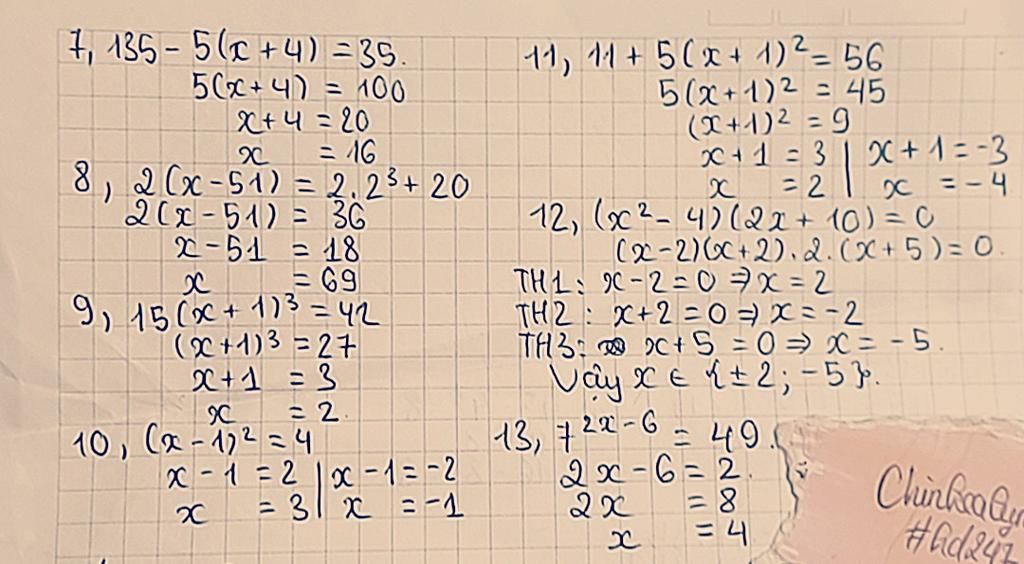 7, 135 - 5(x + 4) = 35.
5(x+4) = 100
x+4 = 20
x = 16
8, 2(x-51) = 2.2³ + 20
2(x-51) = 36
x-51 = 18
x = 69
9, 15(x+1)³ = 42
(x+1)³ = 27
x+1 = 3
x = 2.
10, (x-1)² = 4
x-1 = 2 | x-1 = -2
x = 3 | x = -1
11, 11 + 5(x+1)² = 56
5(x+1)² = 45
(x+1)² = 9
x+1 = 3 | x+1 = -3
x = 2 | x = -4
12, (x² - 4)(2x + 10) = 0
(x-2)(x+2).2.(x+5) = 0.
TH1: x-2 = 0 ⇒ x = 2
TH2: x+2 = 0 ⇒ x = -2
TH3: x+5 = 0 ⇒ x = -5.
Vậy x ∈ {±2; -5}.
13, 7²ˣ⁻⁶ = 49.
2x-6 = 2.
2x = 8
x = 4